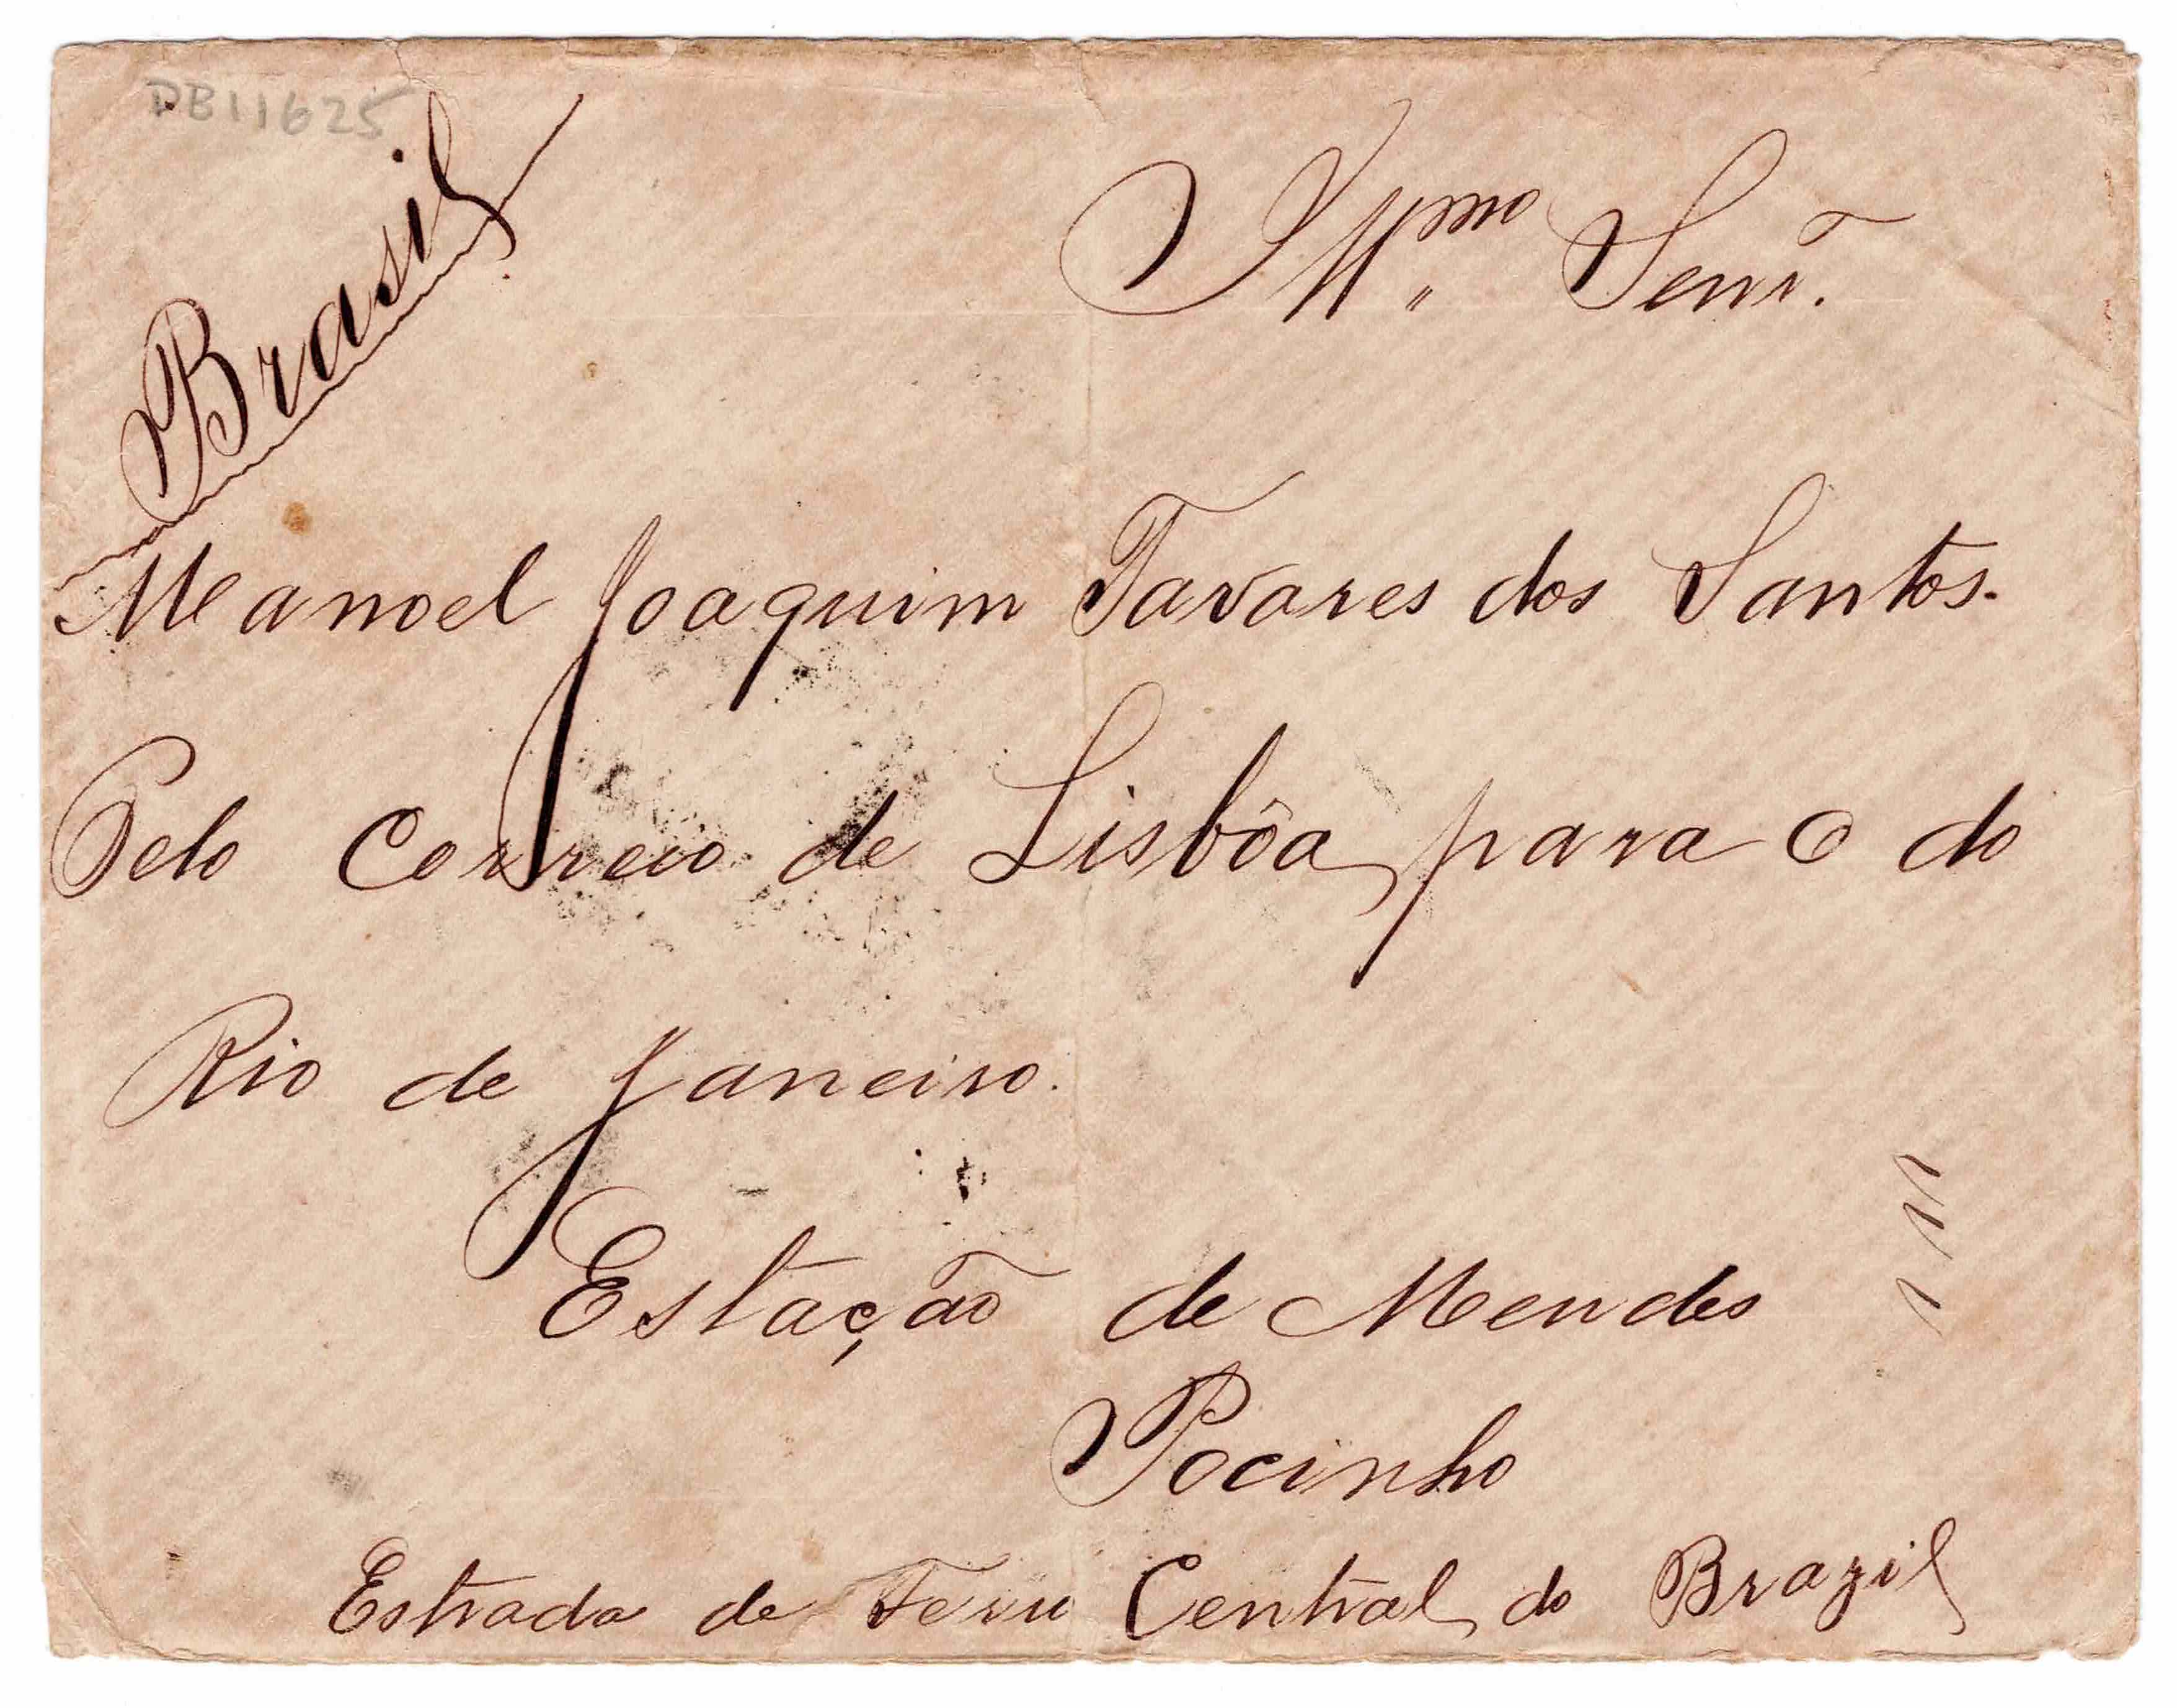 DB11625
Brasil
Illmo Senr.
Manoel Joaquim Tavares dos Santos.
Pelo Correio de Lisbôa para o do
Rio de Janeiro.
Estação de Mendes
Pocinho
Estrada de Ferro Central do Brazil